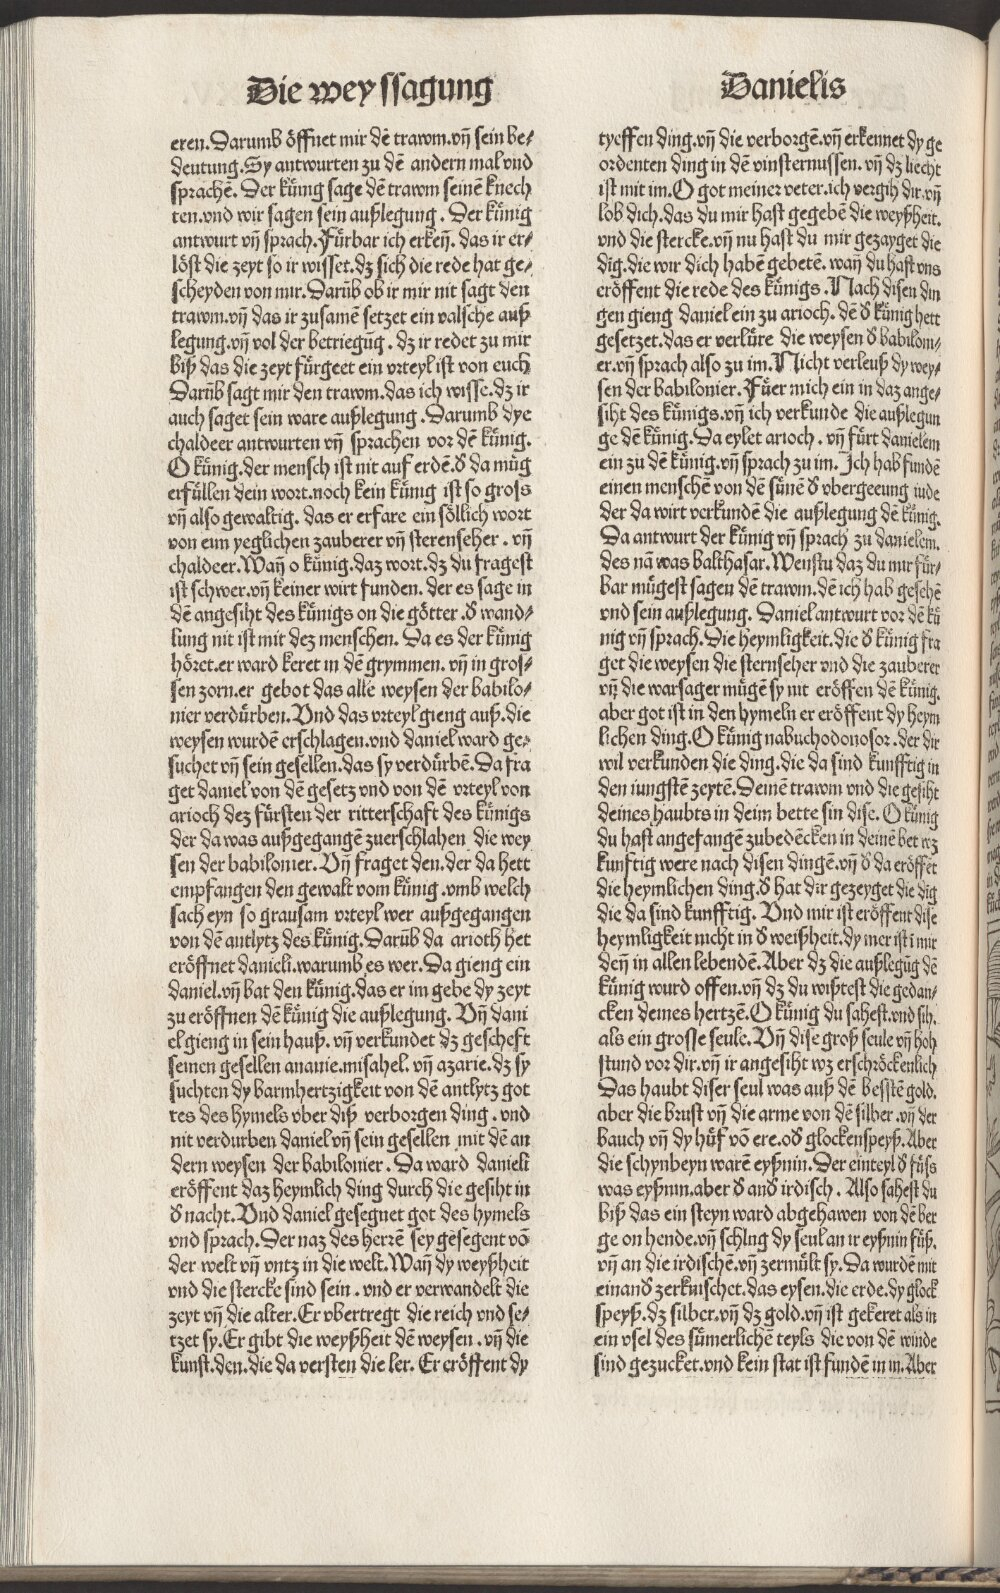 Die weyssagung
Danielis
eren.Darumb öffnet mir dē trawm.vn̄ sein be-
deutung.Sy antwurten zu dē andern mal vnd
sprachē. Der kűnig sage dē trawm seinē knech
ten.vnd wir sagen sein außlegung. Der kűnig
antwurt vn̄ sprach.Fűrbar ich erken̄. das ir er-
löst die zeyt so ir wisset.dz sich die rede hat ge-
scheyden von mir.Darūb ob ir mir nit sagt den
trawm.vn̄ das ir zusamē setzet ein valsche auß
legung.vn̄ vol der betriegūg. dz ir redet zu mir
biß das die zeyt fűrgeet ein vrteyl ist von euch
Darūb sagt mir den trawm.das ich wisse.dz ir
auch saget sein ware außlegung. Darumb dye
chaldeer antwurten vn̄ sprachen vor dē kűnig.
O kűnig.der mensch ist nit auf erdē.d̄ da műg
erfűllen dein wort.noch kein kűnig ist so gross
vn̄ also gewaltig. das er erfare ein söllich wort
von eim yeglichen zauberer vn̄ sterenseher. vn̄
chaldeer.Wan̄ o kűnig.daz wort.dz du fragest
ist schwer.vn̄ keiner wirt funden. der es sage in
dē angesiht des kűnigs on die götter .d̄ wand-
lung nit ist mit dez menschen. Da es der kűnig
höret.er ward keret in dē grymmen. vn̄ in gros-
sen zorn.er gebot das alle weysen der babilo-
nier verdűrben.Vnd das vrteyl gieng auß.die
weysen wurdē erschlagen.vnd daniel ward ge-
suchet vn̄ sein gesellen.das sy verdűrbē.Da fra
get daniel von dē gesetz vnd von dē vrteyl von
arioch dez fűrsten der ritterschaft des kűnigs
der da was außgegangē zuerschlahen die wey
sen der babilonier. Vn̄ fraget den.der da hett
empfangen den gewalt vom kűnig .vmb welch
sach eyn so grausam vrteyl wer außgegangen
von dē antlytz des kűnig.Darūb da arioth het
eröffnet danieli.warumb es wer.Da gieng ein
daniel.vn̄ bat den kűnig.das er im gebe dy zeyt
zu eröffnen dē kűnig die außlegung. Vn̄ dani
el gieng in sein hauß. vn̄ verkundet dz gescheft
seinen gesellen ananie.misahel. vn̄ azarie.dz sy
suchten dy barmhertzigkeit von dē antlytz got
tes des hymels vber diß verborgen ding. vnd
nit verdurben daniel vn̄ sein gesellen mit dē an
dern weysen der babilonier. Da ward danieli
eröffent daz heymlich ding durch die gesiht in
d̄ nacht. Vnd daniel gesegnet got des hymels
vnd sprach. Der naz des herrē sey gesegent vō
der welt vn̄ vntz in die welt.Wan̄ dy weyßheit
vnd die stercke sind sein . vnd er verwandelt die
zeyt vn̄ die alter.Er vbertregt die reich vnd se-
tzet sy.Er gibt die weyßheit dē weysen .vn̄ die
kunst.den.die da versten die ler. Er eröffent dy
tyeffen ding.vn̄ die verborgē.vn̄ erkennet dy ge
ordenten ding in dē vinsternussen. vn̄ dz liecht
ist mit im.O got meiner veter.ich vergih dir.vn̄
lob dich.das du mir hast gegebē die weyßheit.
vnd die stercke.vn̄ nu hast du mir gezayget die
dig.die wir dich habē gebetē. wan̄ du hast vns
eröffent die rede des kűnigs .Nach disen din
gen gieng daniel ein zu arioch. dē d̄ kűnig hett
gesetzet.das er verlűre die weysen d̄ babiloni-
er.vn̄ sprach also zu im.Nicht verleuß dy wey-
sen der babilonier. Fűer mich ein in daz ange-
siht des kűnigs.vn̄ ich verkunde die außlegun
ge dē kűnig.Da eylet arioch . vn̄ fűrt danielem
ein zu dē kűnig.vn̄ sprach zu im. Ich hab fundē
einen menschē von dē sűnē d̄ vbergeeung iude
der da wirt verkundē die außlegung dē kűnig.
Da antwurt der kűnig vn̄ sprach zu danielem.
des nā was balthasar. Wenstu daz du mir fűr-
bar műgest sagen dē trawm.dē ich hab gesehē
vnd sein außlegung. Daniel antwurt vor dē kű
nig vn̄ sprach.Die heymligkeit.die d̄ kűnig fra
get die weysen die sternseher vnd die zauberer
vn̄ die warsager műgē sy nit eröffen dē kűnig.
aber got ist in den hymeln er eröffent dy heym
lichen ding.O kűnig nabuchodonosor .der dir
wil verkunden die ding.die da sind kunfftig in
den iungstē zeytē.Deinē trawm vnd die gesiht
deines haubts in deim bette sin dise. O kűnig
du hast angefangē zubedēcken in deinē bet wz
kunftig were nach disen dingē.vn̄ d̄ da eröffēt
die heymlichen ding.d̄ hat dir gezeyget die dig
die da sind kunfftig. Vnd mir ist eröffent dise
heymligkeit nicht in d̄ weißheit.dy mer ist ī mir
den̄ in allen lebendē.Aber dz die außlegūg dē
kűnig wurd offen.vn̄ dz du wißtest die gedan-
cken deines hertzē.O kűnig du sahest.vnd sih.
als ein grosse seule. Vn̄ dise groß seule vn̄ hoh
stund vor dir.vn̄ ir angesiht wz erschröckenlich
Das haubt diser seul was auß dē besstē gold.
aber die brust vn̄ die arme von dē silber .vn̄ der
bauch vn̄ dy hűf vō ere.od̄ glockenspeyß.Aber
die schynbeyn warē eyßnin.Der ein teyl d̄ fűss
was eyßnin.aber d̄ and̄ irdisch . Also sahest du
biß das ein steyn ward abgehawen von dē ber
ge on hende.vn̄ schlug dy seul an ir eyßnin fűß.
vn̄ an die irdischē.vn̄ zerműlt sy.Da wurdē mit
einand̄ zerknischet.das eysen.die erde.dy glock
speyß.dz silber.vn̄ dz gold.vn̄ ist gekeret als in
ein vsel des sűmerlichē teyls die von dē winde
sind gezucket.vnd kein stat ist fundē in in.Aber